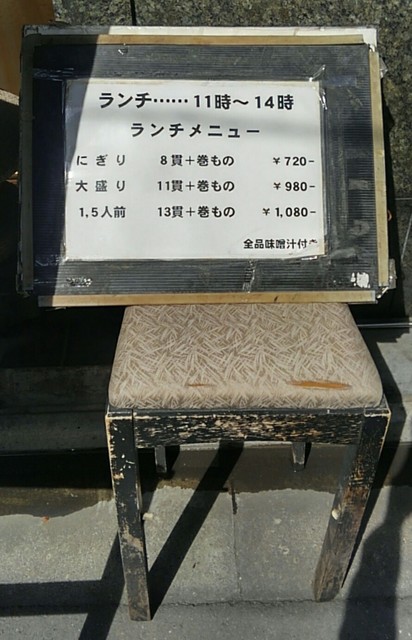 ランチ……11時～14時
ランチメニュー
にぎり 8貫＋巻もの ￥720-
大盛り 11貫＋巻もの ￥980-
1,5人前 13貫＋巻もの ￥1,080-
全品味噌汁付き